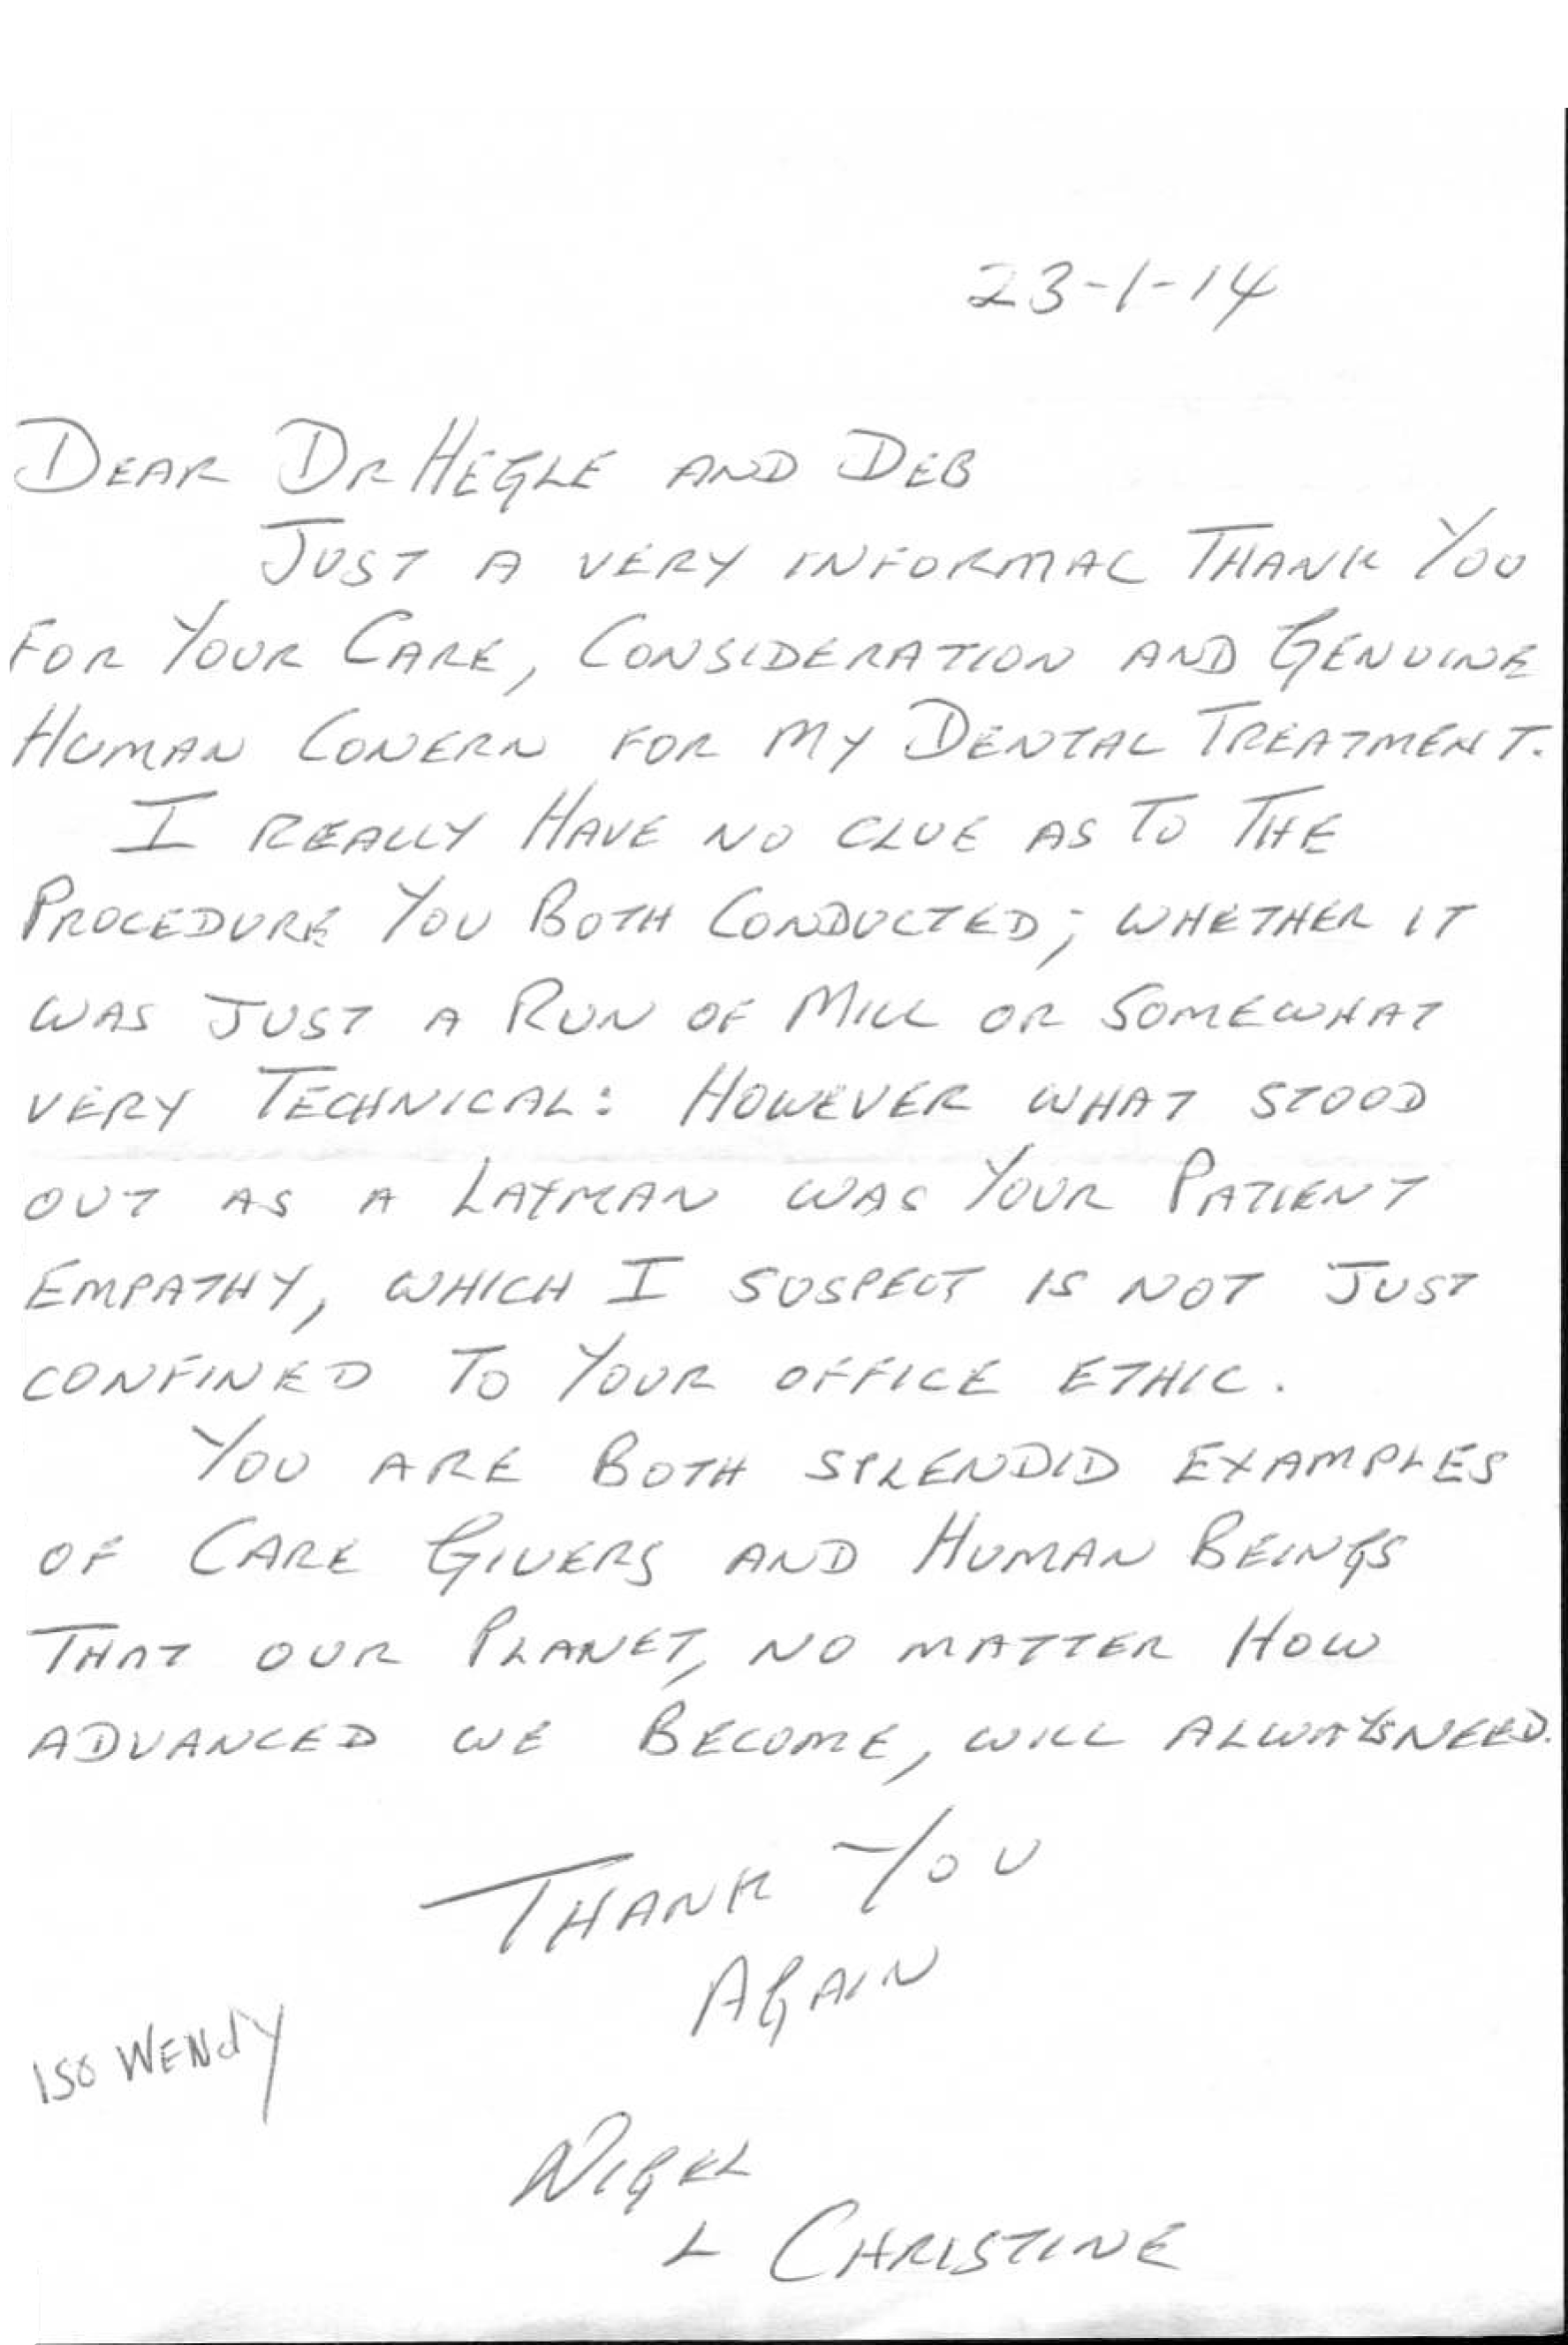 23-1-14
DEAR DR HEGLE AND DEB
JUST A VERY INFORMAL THANK YOU
FOR YOUR CARE, CONSIDERATION AND GENUINE
HUMAN CONERN FOR MY DENTAL TREATMENT.
I REALLY HAVE NO CLUE AS TO THE
PROCEDURE YOU BOTH CONDUCTED; WHETHER IT
WAS JUST A RUN OF MILL OR SOMEWHAT
VERY TECHNICAL: HOWEVER WHAT STOOD
OUT AS A LAYMAN WAS YOUR PATIENT
EMPATHY, WHICH I SUSPECT IS NOT JUST
CONFINED TO YOUR OFFICE ETHIC.
YOU ARE BOTH SPLENDID EXAMPLES
OF CARE GIVERS AND HUMAN BEINGS
THAT OUR PLANET, NO MATTER HOW
ADVANCED WE BECOME, WILL ALWAYS NEED.
THANK YOU
AGAIN
WENDY
NIGEL
& CHRISTINE